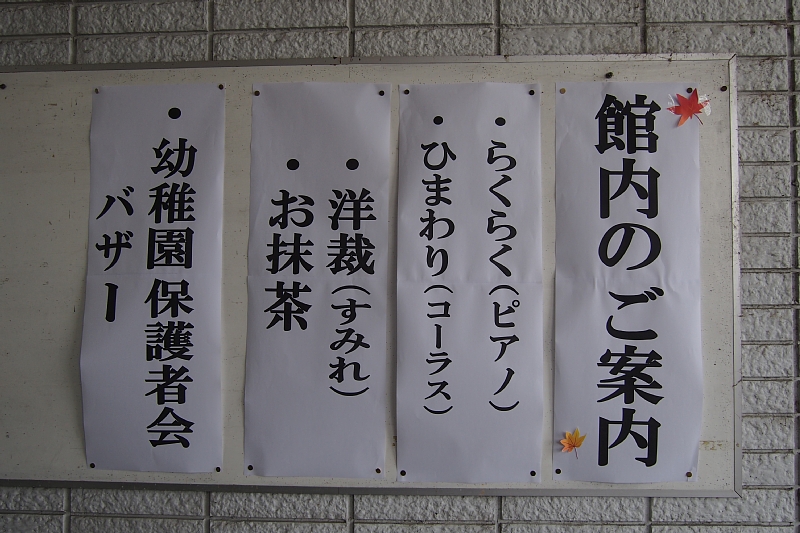 館内のご案内
・らくらく(ピアノ)
・ひまわり(コーラス)
・洋裁(すみれ)
・お抹茶
・幼稚園保護者会
バザー